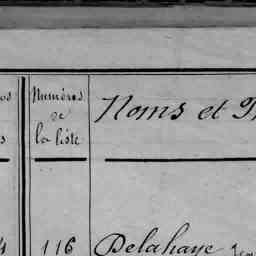 Numéros
de
la liste
Noms et
116 Delahaye